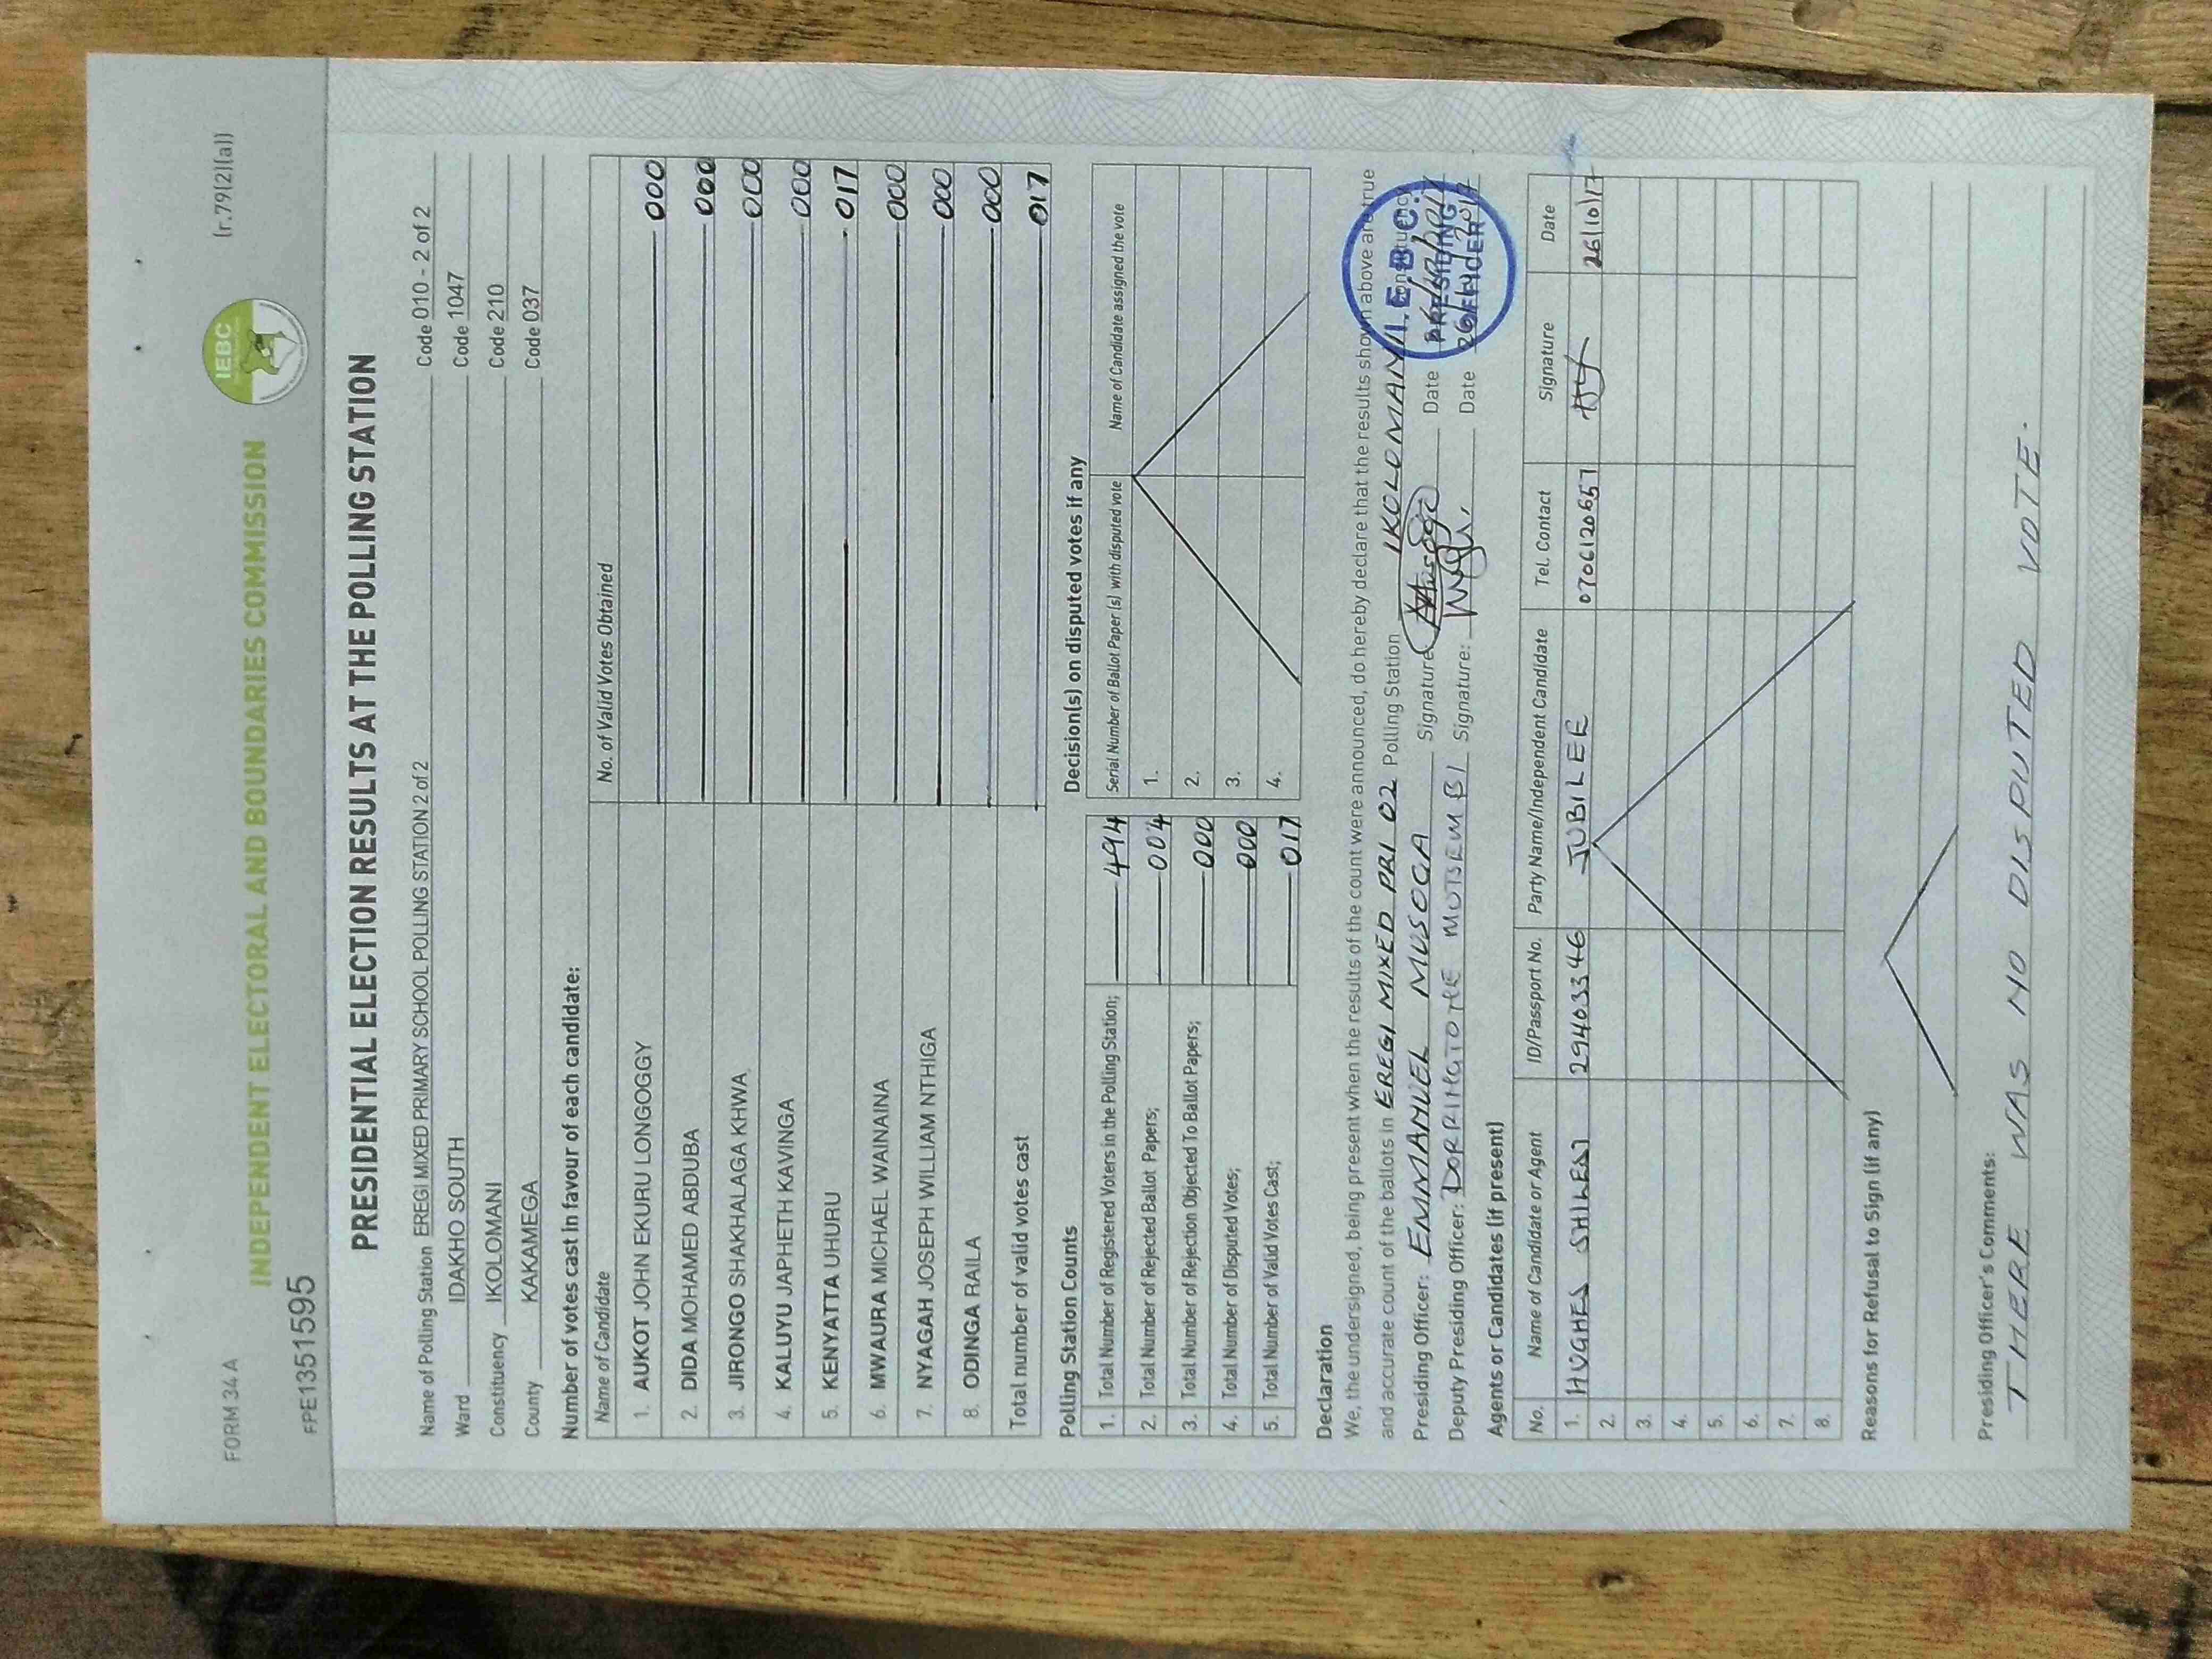 FORM 34 A
(r.79(2)(a))
IEBC
INDEPENDENT ELECTORAL AND BOUNDARIES COMMISSION
FPE1351595
PRESIDENTIAL ELECTION RESULTS AT THE POLLING STATION
Name of Polling Station EREGI MIXED PRIMARY SCHOOL POLLING STATION 2 of 2 Code 010 - 2 of 2
Ward IDAKHO SOUTH Code 1047
Constituency IKOLOMANI Code 210
County KAKAMEGA Code 037
Number of votes cast in favour of each candidate:
Name of Candidate No. of Valid Votes Obtained
1. AUKOT JOHN EKURU LONGOGGY 000
2. DIDA MOHAMED ABDUBA 000
3. JIRONGO SHAKHALAGA KHWA 000
4. KALUYU JAPHETH KAVINGA 000
5. KENYATTA UHURU 017
6. MWAURA MICHAEL WAINAINA 000
7. NYAGAH JOSEPH WILLIAM NTHIGA 000
8. ODINGA RAILA 000
Total number of valid votes cast 017
Polling Station Counts
1. Total Number of Registered Voters in the Polling Station; 494
2. Total Number of Rejected Ballot Papers; 004
3. Total Number of Rejection Objected To Ballot Papers; 000
4. Total Number of Disputed Votes; 000
5. Total Number of Valid Votes Cast; 017
Decision(s) on disputed votes if any
Serial Number of Ballot Paper (s) with disputed vote Name of Candidate assigned the vote
1.
2.
3.
4.
Declaration
We, the undersigned, being present when the results of the count were announced, do hereby declare that the results shown above are true
and accurate count of the ballots in EREGI MIXED PRI 02 Polling Station IKOLOMANI Constituency
Presiding Officer: EMMANUEL MUSOGA Signature Date
Deputy Presiding Officer: Signature: Date
I.E.B.C.
PRESIDING
OFFICER
Agents or Candidates (if present)
No. Name of Candidate or Agent ID/Passport No. Party Name/Independent Candidate Tel. Contact Signature Date
1. HUGHES 29403346 JUBILEE 0706120557 26/10/17
2.
3.
4.
5.
6.
7.
8.
Reasons for Refusal to Sign (if any)
Presiding Officer's Comments:
THERE WAS NO DISPUTED VOTE.